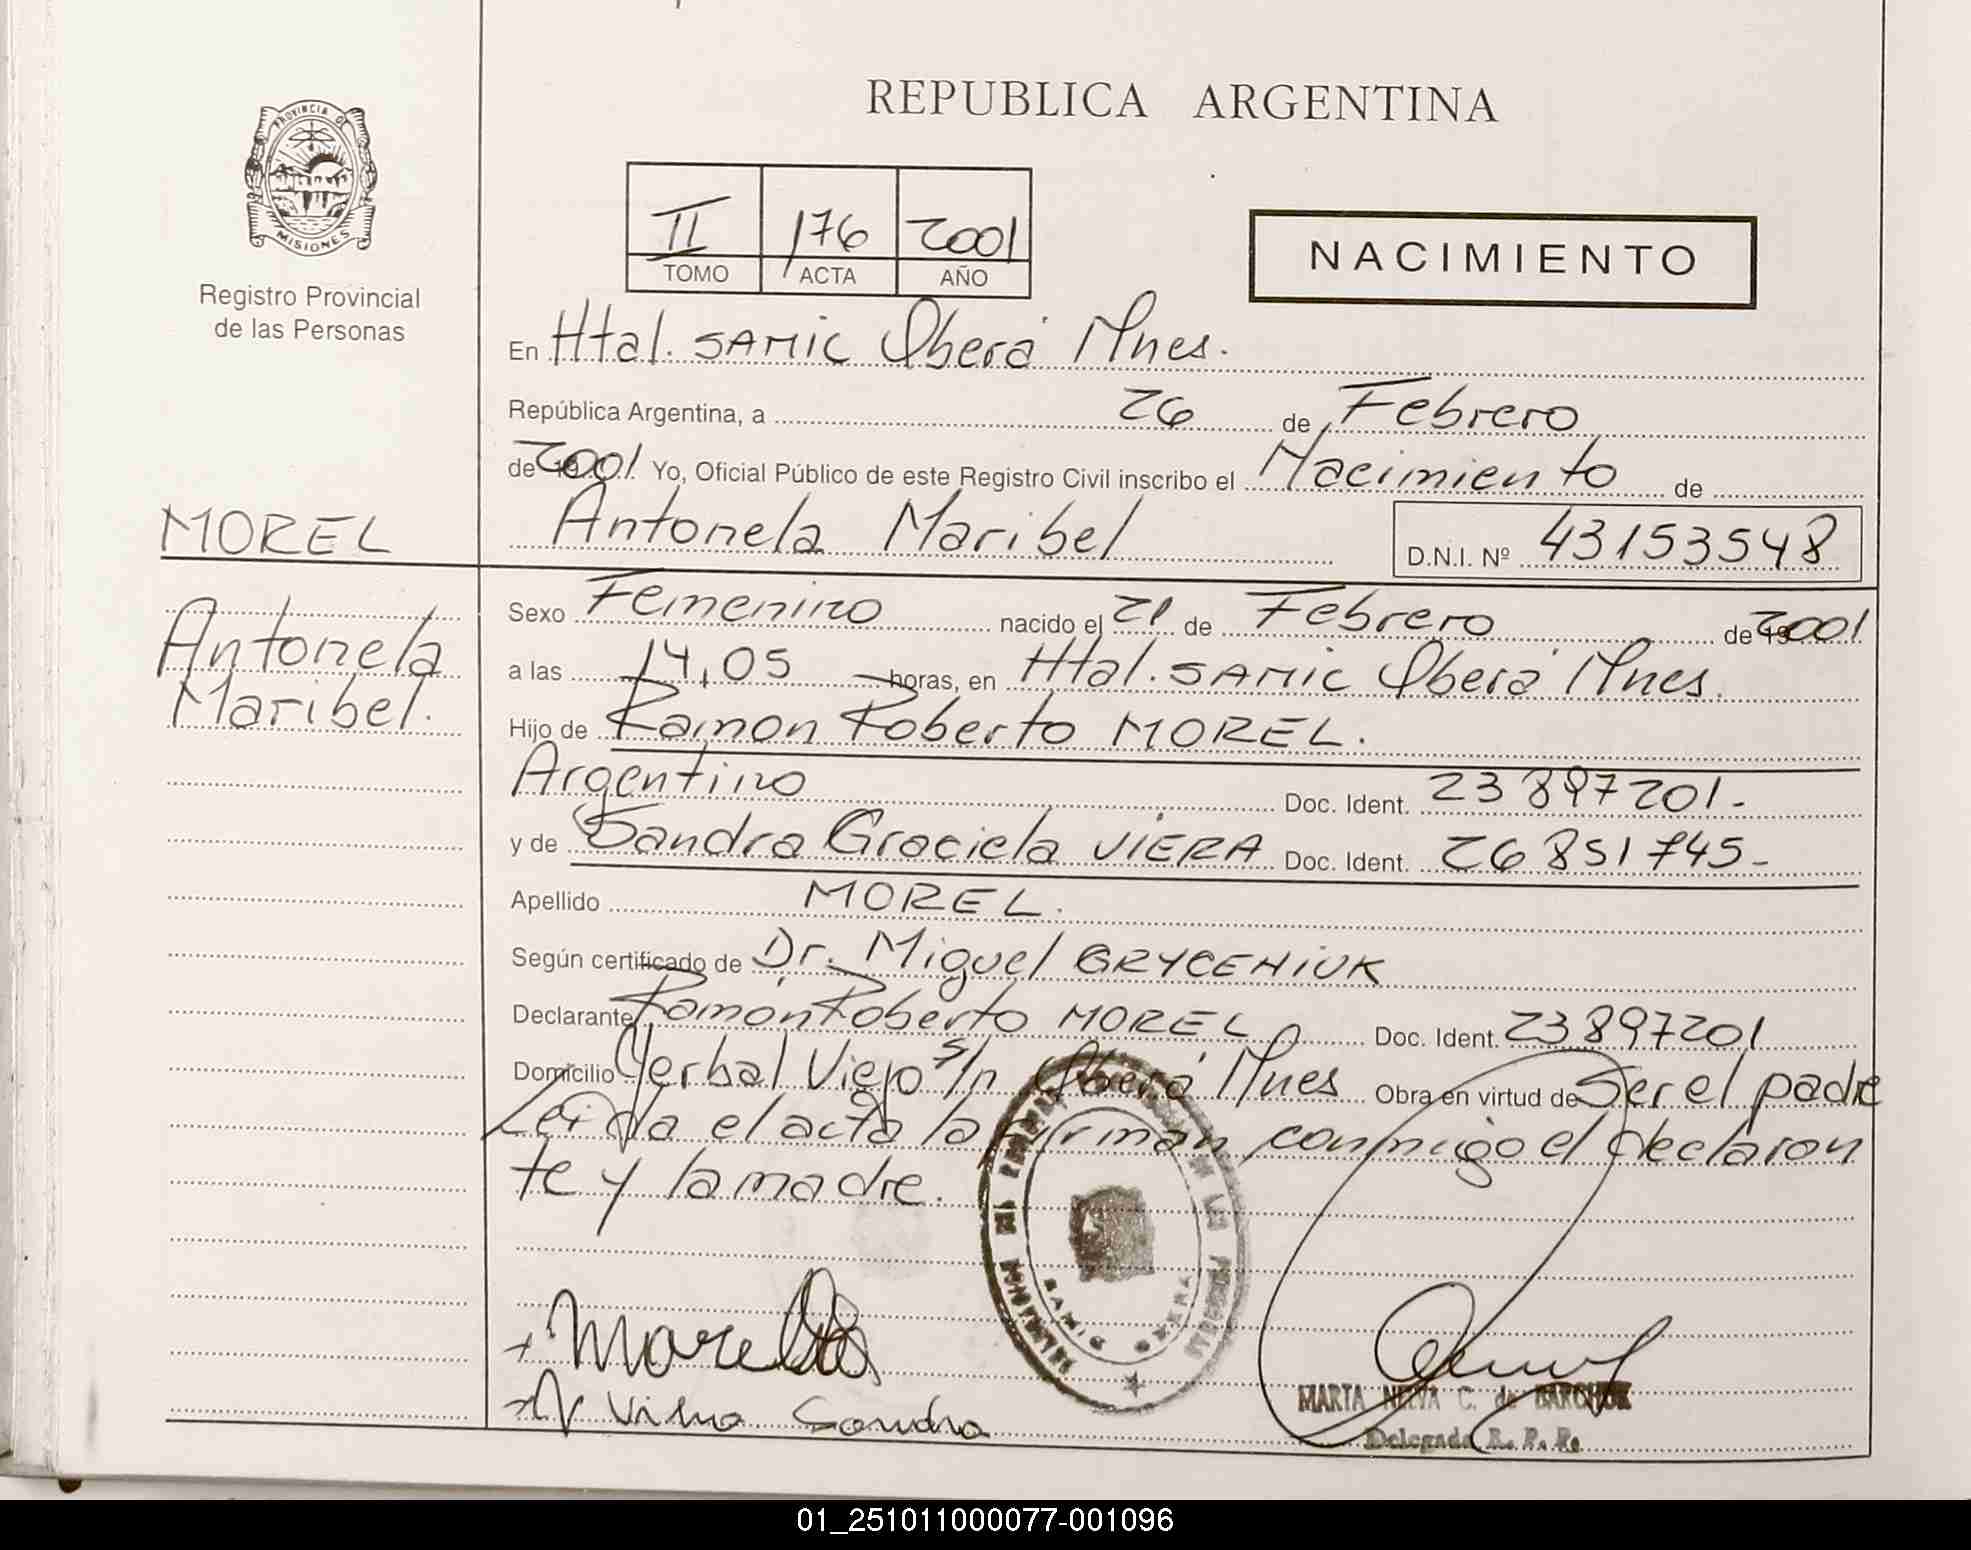 PROVINCIA DE
MISIONES
Registro Provincial
de las Personas
REPUBLICA ARGENTINA
II 176 2001
TOMO ACTA AÑO
NACIMIENTO
En Htal. SAMIC Oberá Mnes.
República Argentina, a 26 de Febrero
de 2001. Yo, Oficial Público de este Registro Civil inscribo el Nacimiento de
MOREL
Antonela Maribel D.N.I. Nº 43153548
Antonela
Maribel.
Sexo Femenino nacido el 21 de Febrero de 2001
a las 14,05 horas, en Htal. SAMIC Oberá Mnes.
Hijo de Ramon Roberto MOREL.
Argentino Doc. Ident. 23897201-
y de Sandra Graciela VIERA Doc. Ident. 26851745-
Apellido MOREL.
Según certificado de Dr. Miguel GRYCENIUK
Declarante Ramón Roberto MOREL Doc. Ident. 23897201
Domicilio Yerbal Viejo s/n Oberá Mnes Obra en virtud de Ser el padre
Leida el acta la firman conmigo el declaran
te y la madre.
+ Morel
+ Sandra
MARTA C. de BARCHUK
Delegada R. P. P.
01_251011000077-001096